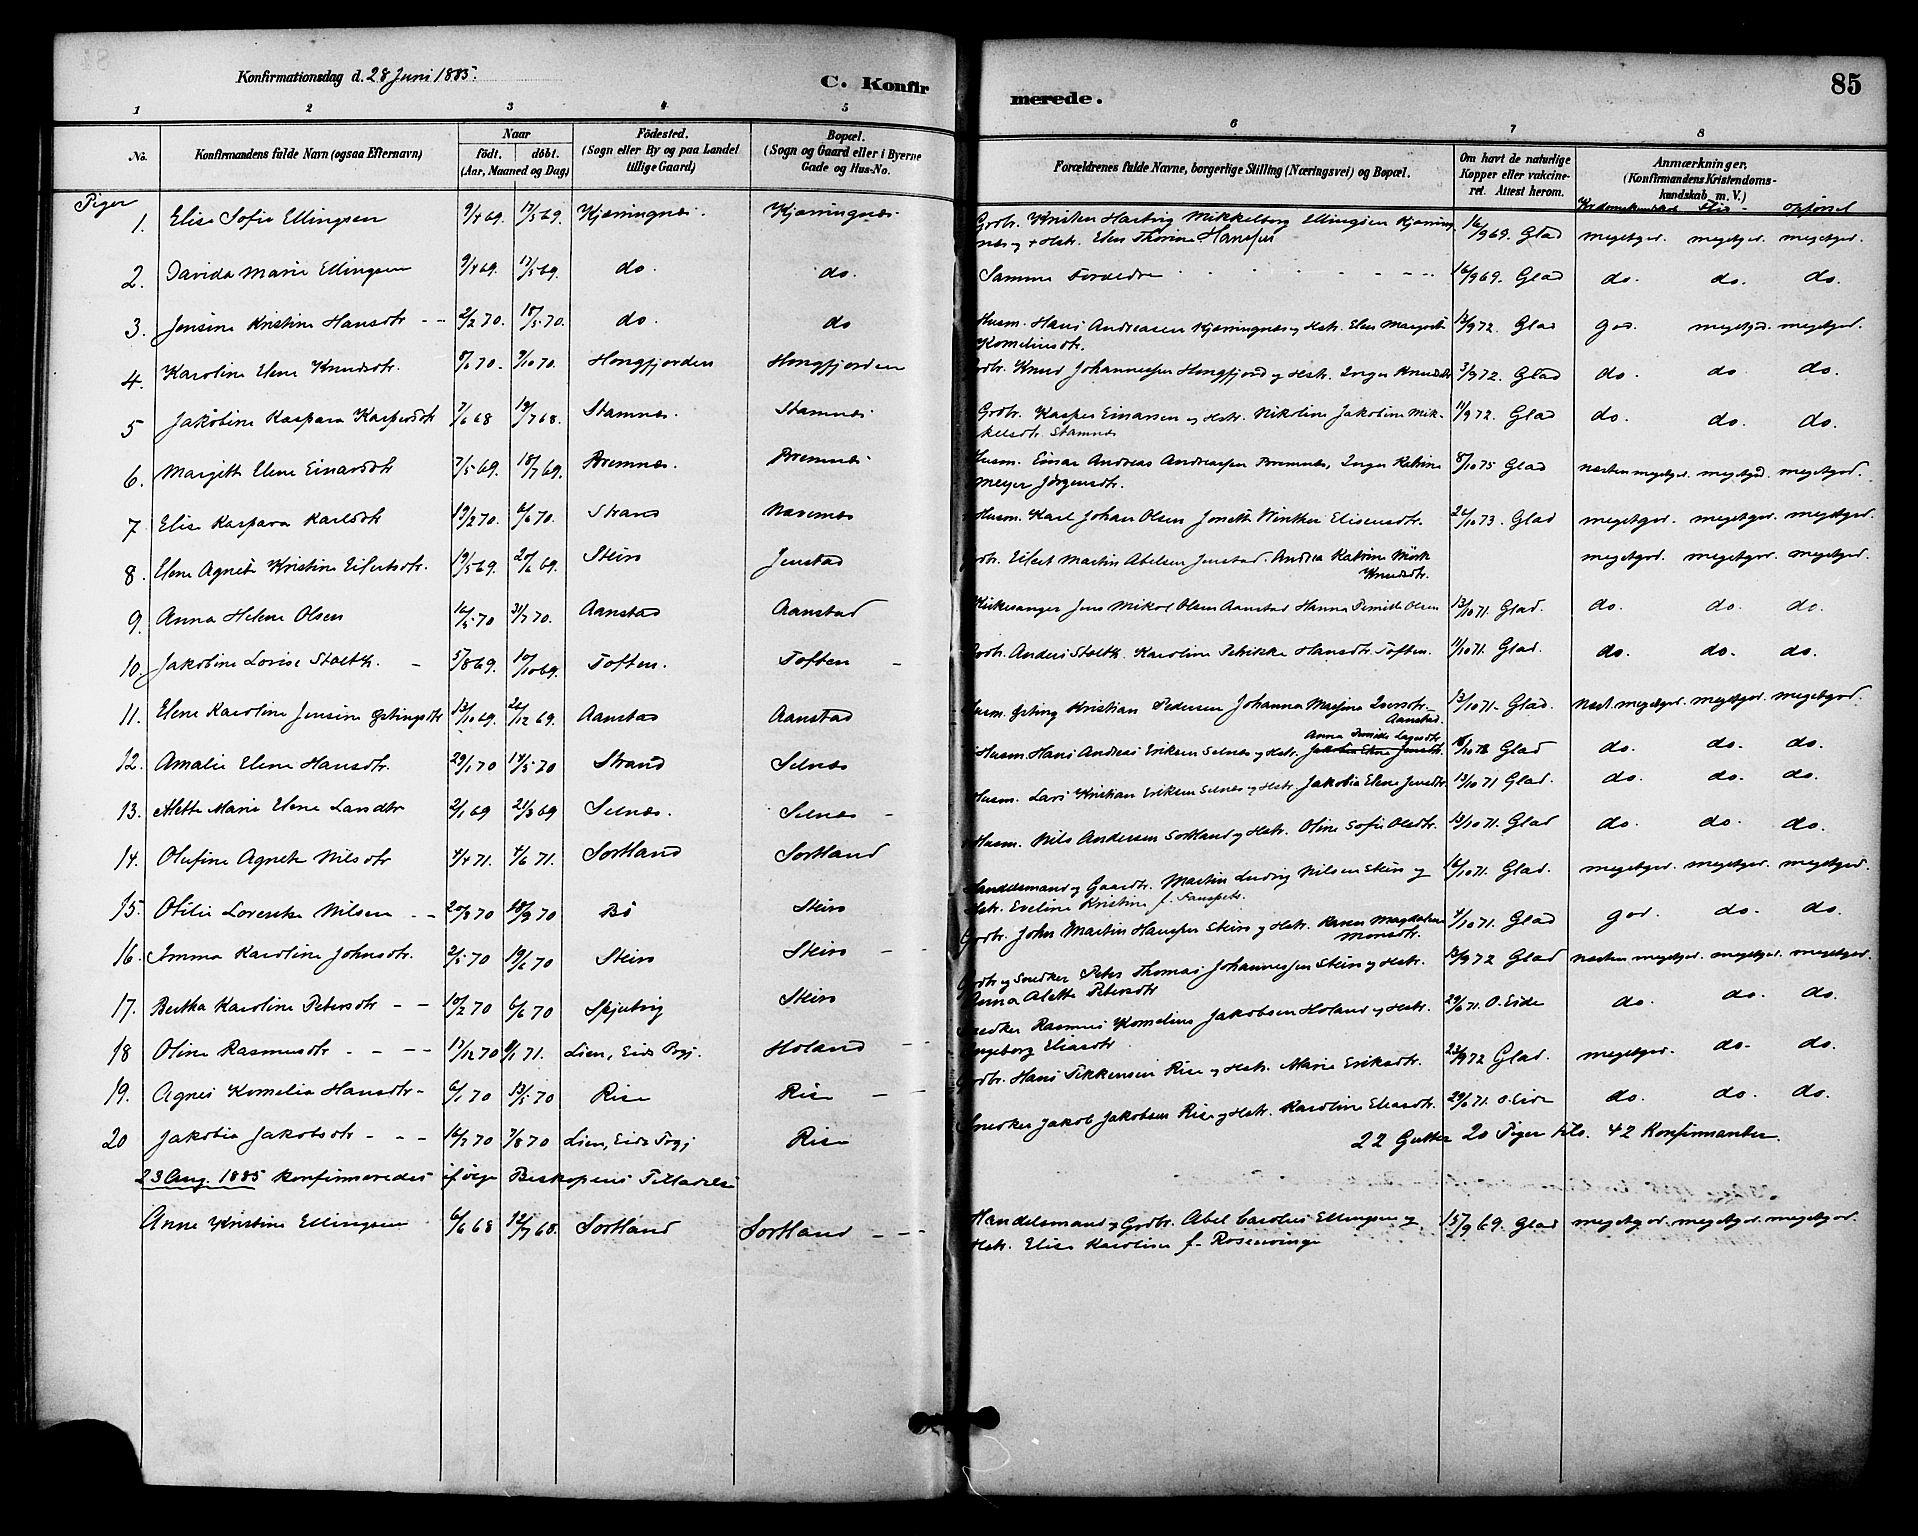 Konfirmationsdag d. 28 Juni 1885.
C. Konfirmerede.
85
1 2 3 4 5 6 7 8
No.
Konfirmandens fulde Navn (ogsaa Efternavn)
Naar
födt. döbt.
(Aar, Maaned og Dag)
Födested.
(Sogn eller By og paa Landet
tillige Gaard)
Bopæl.
(Sogn og Gaard eller i Byerne
Gade og Hus-No.
Forældrenes fulde Navne, borgerlige Stilling (Næringsvei) og Bopæl.
Om havt de naturlige
Kopper eller vakcine-
ret. Attest herom.
Anmærkninger.
(Konfirmandens Kristendoms-
kundskab m. V.)
Flid - opförsel
Piger
1. Elise Sofie Ellingsen 9/4 69. 17/5 69. Kjærringnæs. Kjærringnæs. Grdbr. Kristen Hartvig Mikkelborg Ellingsen Kjærring-
næs og + Hstr. Elen Thorine Hansen 16/9 69. Glad megetgod. megetgod. megetgod.
2. Davida Marie Ellingsen 9/4 69. 17/5 69. do. do. Samme Foreldre 16/9 69. Glad do. do. do.
3. Jensine Kristine Hansdtr 2/2 70. 18/5 70. do. do Husm. Hans Andreasen Kjærringnæs og Hstr. Elen Margrete
Kornelius dtr. 13/9 72. Glad god. megetgod. megetgod.
4. Karoline Elene Knudsdtr. 8/6 70. 9/10 70. Hongfjorden Hongfjorden Grdbr. Knud Johannessen Hongfjord og Hstr. Inger Knudsdtr 3/9 72. Glad do. do do.
5 Jakobine Kaspara Kaspersdtr 7/6 68 19/7 68. Stamnæs. Stamnæs. Grdbr. Kasper Einarsen og Hstr. Nikoline Jakobine Mik-
kelsdtr. Stamnæs 11/9 72. Glad do. do. do.
6. Margitte Elene Einarsdtr 7/5 69. 18/7 69. Bremnæs. Bremnæs Husm. Einar Andreas Andreassen Bremnæs, Inger Katrine
Meyer Jörgensdtr. 8/10 75 Glad næsten megetgod. megetgod. megetgod.
7. Elise Kaspara Karlsdtr 19/2 70. 6/6 70. Strand Husm. Karl Johan Olsen Jonette Winther Elisensdtr. 26/10 73. Glad megetgod. megetgod. megetgod.
8. Elene Agnete Kristine Eilertsdtr. 19/5 69. 20/6 69. Steiro Jenstad Grdbr. Eilert Martin Abelsen Jenstad. Andrea Katrine Mörk
Knudsdtr. megetgod. megetgod. megetgod.
9. Anna Helene Olsen 16/5 70 31/7 70. Aanstad Aanstad Kirkesanger Jens Mikal Olsen Aanstad Hanna Olsen 13/10 71. Glad. do. do. do.
10. Jakobine Lovise Stolth. 5/8 69. 10/10 69. Toften. Toften Grdbr. Anders Stolth. Karoline Hansdtr. Toften. 11/10 71. Glad. do. do. do.
11. Elene Karoline Jensine Östingsdtr 13/10 69. 26/12 69. Aanstad Aanstad Husm. Östing Kristian Pedersen Johanna Iversdtr.
Aanstad. 13/10 71. Glad. næst. megetgod. megetgod. megetgod.
12. Amalie Elene Hansdtr. 29/1 70 14/5 70 Strand Selnæs Husm. Hans Andreas Eriksen Selnæs og Hstr. Jakobia Elene Jensdtr. Glad do. do. do.
13. Alette Marie Elene Larsdtr 2/1 69 21/3 69 Selnæs. Selnæs Husm. Lars Kristian Eriksen Selnæs og Hstr. Jakobia Elene Jensdtr. 13/10 71 Glad. do. do. do.
14. Olufine Agnete Nilsdtr 4/4 71. 4/6 71. Sortland Sortland Husm. Nils Andersen Sortland og Hstr. Oline Sofie Olsdtr. 13/10 71. Glad do. do. do.
15. Otilie Nilsen 20/3 70 18/9 70 Bö Steiro Handelsmand og Gaardbr. Martin Ludvig Nilsen Steiro og
Hstr. Eveline Kristine f. 16/10 71. Glad. megetgod. megetgod. megetgod.
16. Imma Karoline Johnsdtr. 2/5 70 19/6 70 Steiro Steiro Grdbr. John Martin Hansen Steiro og Hstr. Karen Magdalena
Monsdtr. 4/10 71. Glad god. do. do.
17. Bertha Karoline Petersdtr 10/2 70 6/6 70 Steiro Grdbr og Snedker Peter Thomas Johannessen Steiro og Hstr.
Anna Alette Petersdtr 12/9 72 Glad næsten megetgod. megetgod. megetgod.
18 Oline Rasmusdtr 17/12 70 9/1 71. Lien, Eids Prgj. Holand Snedker Rasmus Kornelius Jakobsen Holand og Hstr.
Ingeborg Eliasdtr 29/6 71. O. Eide do. do. do.
19. Agnes Kornelia Hansdtr 6/1 70 13/5 70 Rise Rise Grdbr. Hans Pekkensen Rise og Hstr. Marie Eriksdtr. 23/9 72 Glad. megetgod. do. do.
20 Jakobia Jakobsdtr 16/7 70 7/8 70 Lien, Eids Prgj Rise Snedker Jakob Jakobsen Rise og Hstr. Karoline Eliasdtr. 29/6 71. O. Eide do. do. do.
22 Gutter 20 Piger tils. 42 Konfirmander.
23 Aug. 1885 konfirmeredes ifölge Biskopens Tilladelse
Anne Kristine Ellingsen 6/6 68 12/7 68. Sortland Sortland Handelsmand og Grdbr. Abel Carolus Ellingsen og
Hstr. Elise Karoline f. Rosenvinge 15/9 69. Glad megetgod. megetgod. megetgod.